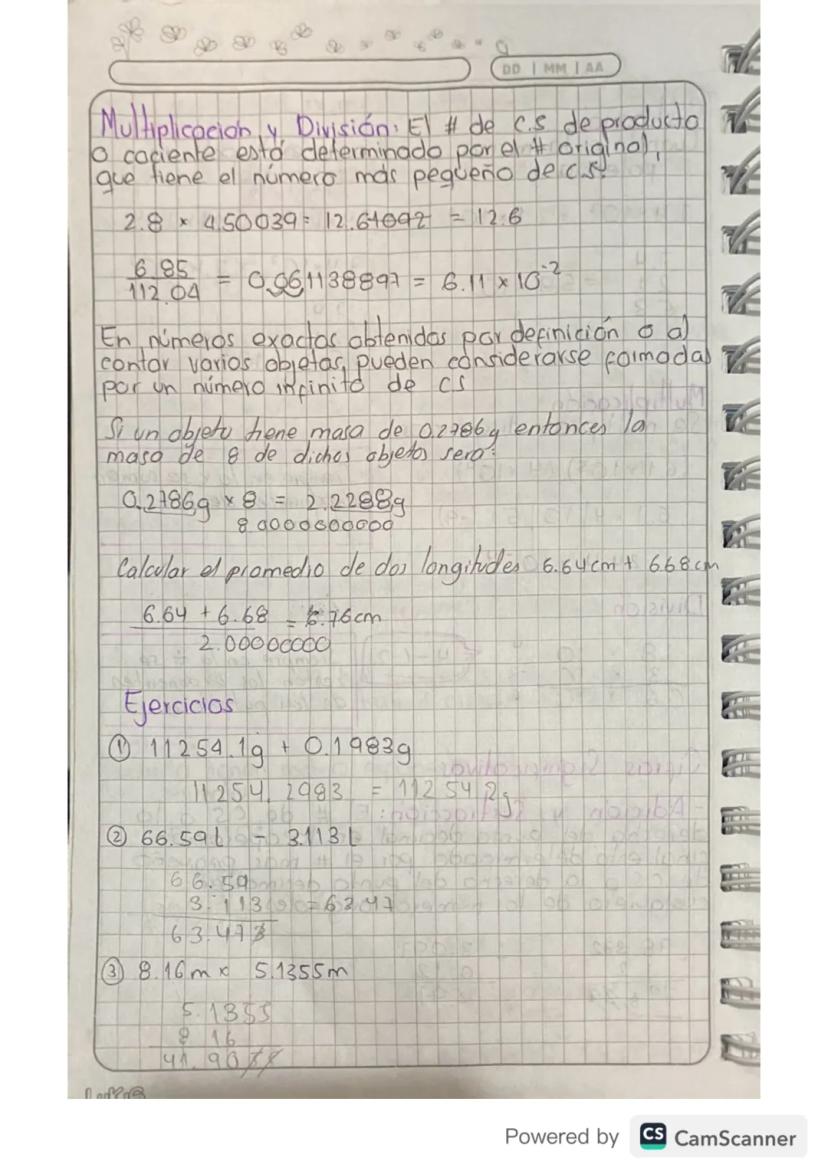 DD | MM | AA
Multiplicacion y División: El # de C.S de producto
o cociente está determinado por el # original,
que tiene el número más pequeño de c.s.
2.8 × 4.50039 = 12.61092 = 12.6
6.85
112.04
= 0.0611388897 = 6.11 × 10⁻²
En números exactos obtenidos por definición o al
contar varios objetos, pueden considerarse formadas
por un número infinito de CS
Si un objeto tiene masa de 0.2786g entonces la
masa de 8 de dichos objetos será:
0.2786g × 8 = 2.2288g
8.0000000000
Calcular el promedio de dos longitudes 6.64cm + 6.68cm
6.64 + 6.68 = 6.76cm
2.00000000
Ejercicios
① 11254.1g + 0.1983g
11254.2983 = 11254.2g
② 66.59L - 3.113L
66.59
3.113 = 63.47
63.473
③ 8.16m × 5.1355m
5.1355
8.16
41.9077
Powered by CS CamScanner